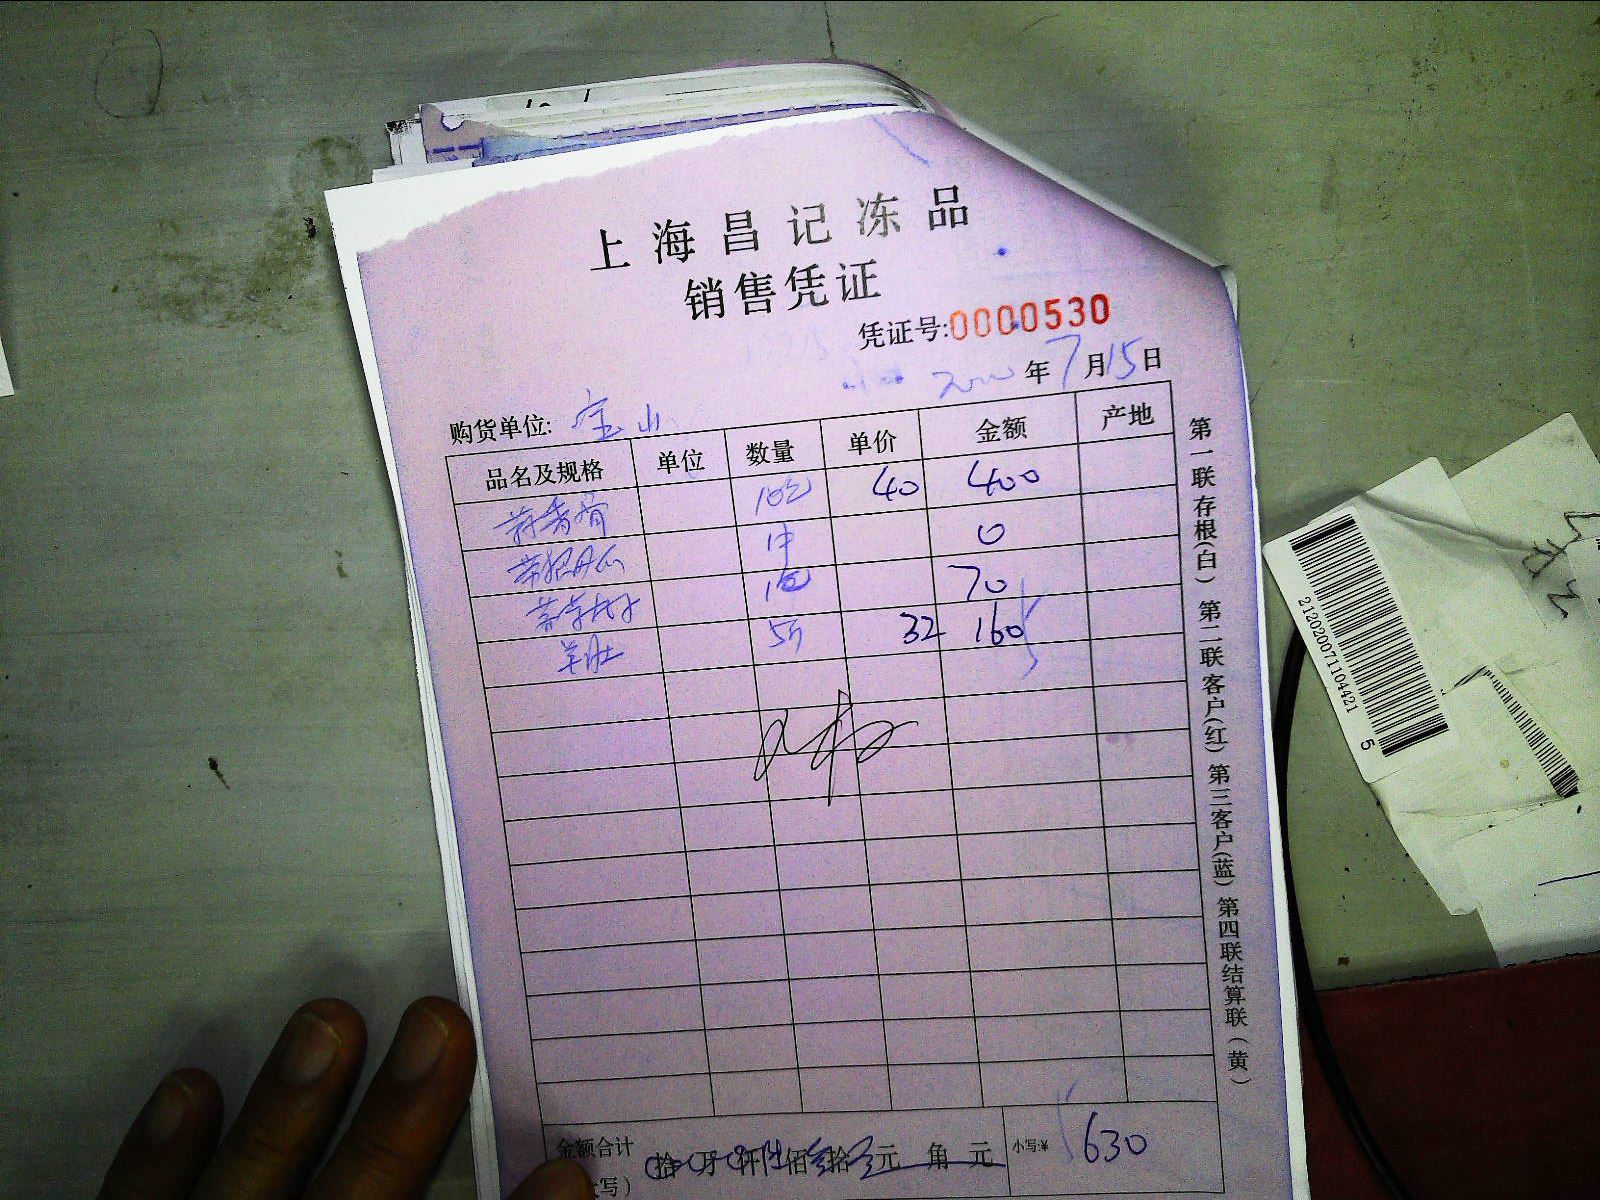 上海昌记冻品
销售凭证
凭证号:0000530
年7月15日
购货单位: 宝山
品名及规格 单位 数量 单价 金额 产地
10包 40 400
1件 0
1包 70
羊肚 5斤 32 160
金额合计
写) 拾 万 仟 陆佰 叁拾 元 角 元 小写:¥ 630
第一联存根(白) 第二联客户(红) 第三客户(蓝) 第四联结算联(黄)
2120200711044215